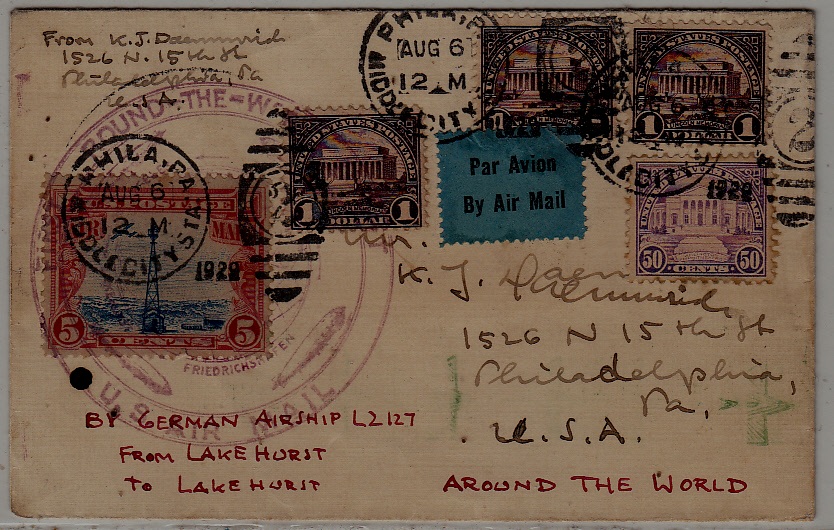 From K.J. Daemmrich
1526 N. 15th St
Philadelphia, Pa
U.S.A.
ROUND-THE-W
FRIEDRICHSHAFEN
U.S. AIR MAIL
PHILA, PA.
AUG 6
12 M
MIDDLE CITY STA.
1929
5 CENTS 5
UNITED STATES POSTAGE
1 DOLLAR 1
PHILA, PA
AUG 6
12 M
MIDDLE CITY
1929
UNITED STATES POSTAGE
UNITED STATES POSTAGE
LINCOLN MEMORIAL
1 DOLLAR 1
1929
50 CENTS 50
Par Avion
By Air Mail
Mr.
K. J. Daemmrich
1526 N 15th St
Philadelphia,
Pa,
U.S.A.
BY GERMAN AIRSHIP LZ127
FROM LAKEHURST
TO LAKEHURST
AROUND THE WORLD